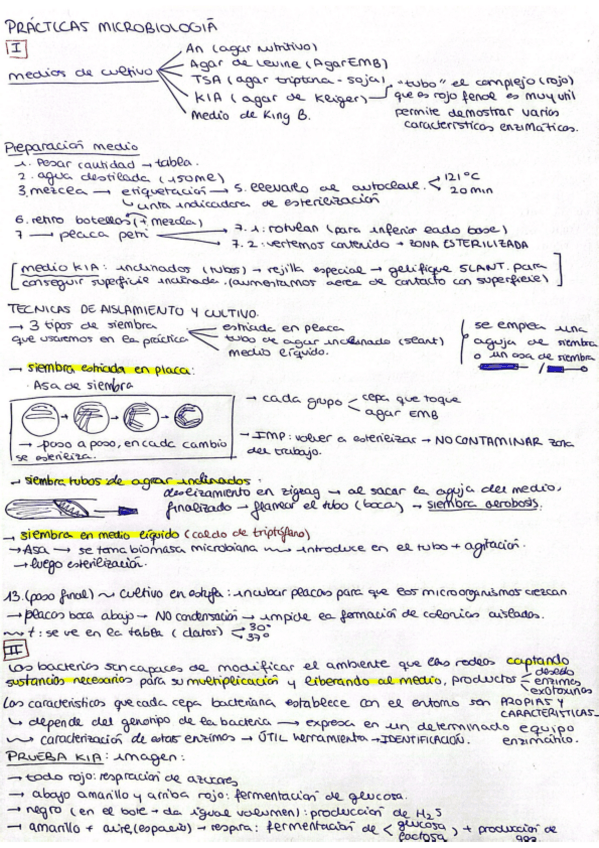 PRÁCTICAS MICROBIOLOGÍA
I
medios de cultivo
An (agar nutritivo)
Agar de Levine (Agar EMB)
TSA (agar triptona - soja)
KIA (agar de Kligler)
Medio de King B.
"tubo" el complejo (rojo)
que es rojo fenol es muy util
permite demostrar varias
características enzimáticas.
Preparación medio
1. Pesar cantidad → tabla.
2. agua destilada (150ml)
3. mezcla → etiquetación → 5. llevarlo al autoclave. < 121°C
20 min
↳ cinta indicadora de esterilización
6. retiro botellas (+ mezcla)
7 → placa petri
7.1: rotulan (para inferior lado base)
7.2: vertemos contenido → ZONA ESTERILIZADA
[medio KIA: inclinados (tubos) → rejilla especial → gelifique SLANT. para
conseguir superficie inclinada. (aumentamos area de contacto con superficie)]
TECNICAS DE AISLAMIENTO Y CULTIVO.
→ 3 tipos de siembra
que usaremos en la práctica
estriada en placa
tubo de agar inclinado (slant)
medio líquido.
se emplea una
aguja de siembra
o un asa de siembra
→ siembra estriada en placa:
· Asa de siembra
→ paso a paso, en cada cambio
se esteriliza.
→ cada grupo < cepa que toque
agar EMB
→ IMP: volver a esterilizar → NO CONTAMINAR zona
del trabajo.
→ siembra tubos de agar inclinados.
deslizamiento en zigzag → al sacar la aguja del medio,
finalizado → flamear el tubo (boca) → siembra aerobosis.
→ siembra en medio líquido (caldo de triptófano)
→ Asa → se toma biomasa microbiana → introduce en el tubo + agitación.
→ luego esterilización.
13. (paso final) ~ cultivo en estufa: incubar placas para que los microorganismos crezcan
→ placas boca abajo → NO condensación → impide la formación de colonias aisladas.
→ t: se ve en la tabla (datos) < 30°
37°
II
Las bacterias son capaces de modificar el ambiente que las rodea captando
sustancias necesarias para su multiplicación y liberando al medio, productos < desecho
enzimas
exotoxinas
Las características que cada cepa bacteriana establece con el entorno son PROPIAS Y
CARACTERÍSTICAS
↳ depende del genotipo de la bacteria → expresa en un determinado equipo
enzimático.
→ caracterización de estas enzimas → ÚTIL herramienta → IDENTIFICACIÓN.
PRUEBA KIA: imagen:
→ todo rojo: respiración de azucares
→ abajo amarillo y arriba rojo: fermentación de glucosa.
→ negro (en el bote → da igual volumen): producción de H2S
→ amarillo + aire (espacio) → respira: fermentación de < glucosa
lactosa ) + producción de
gas.